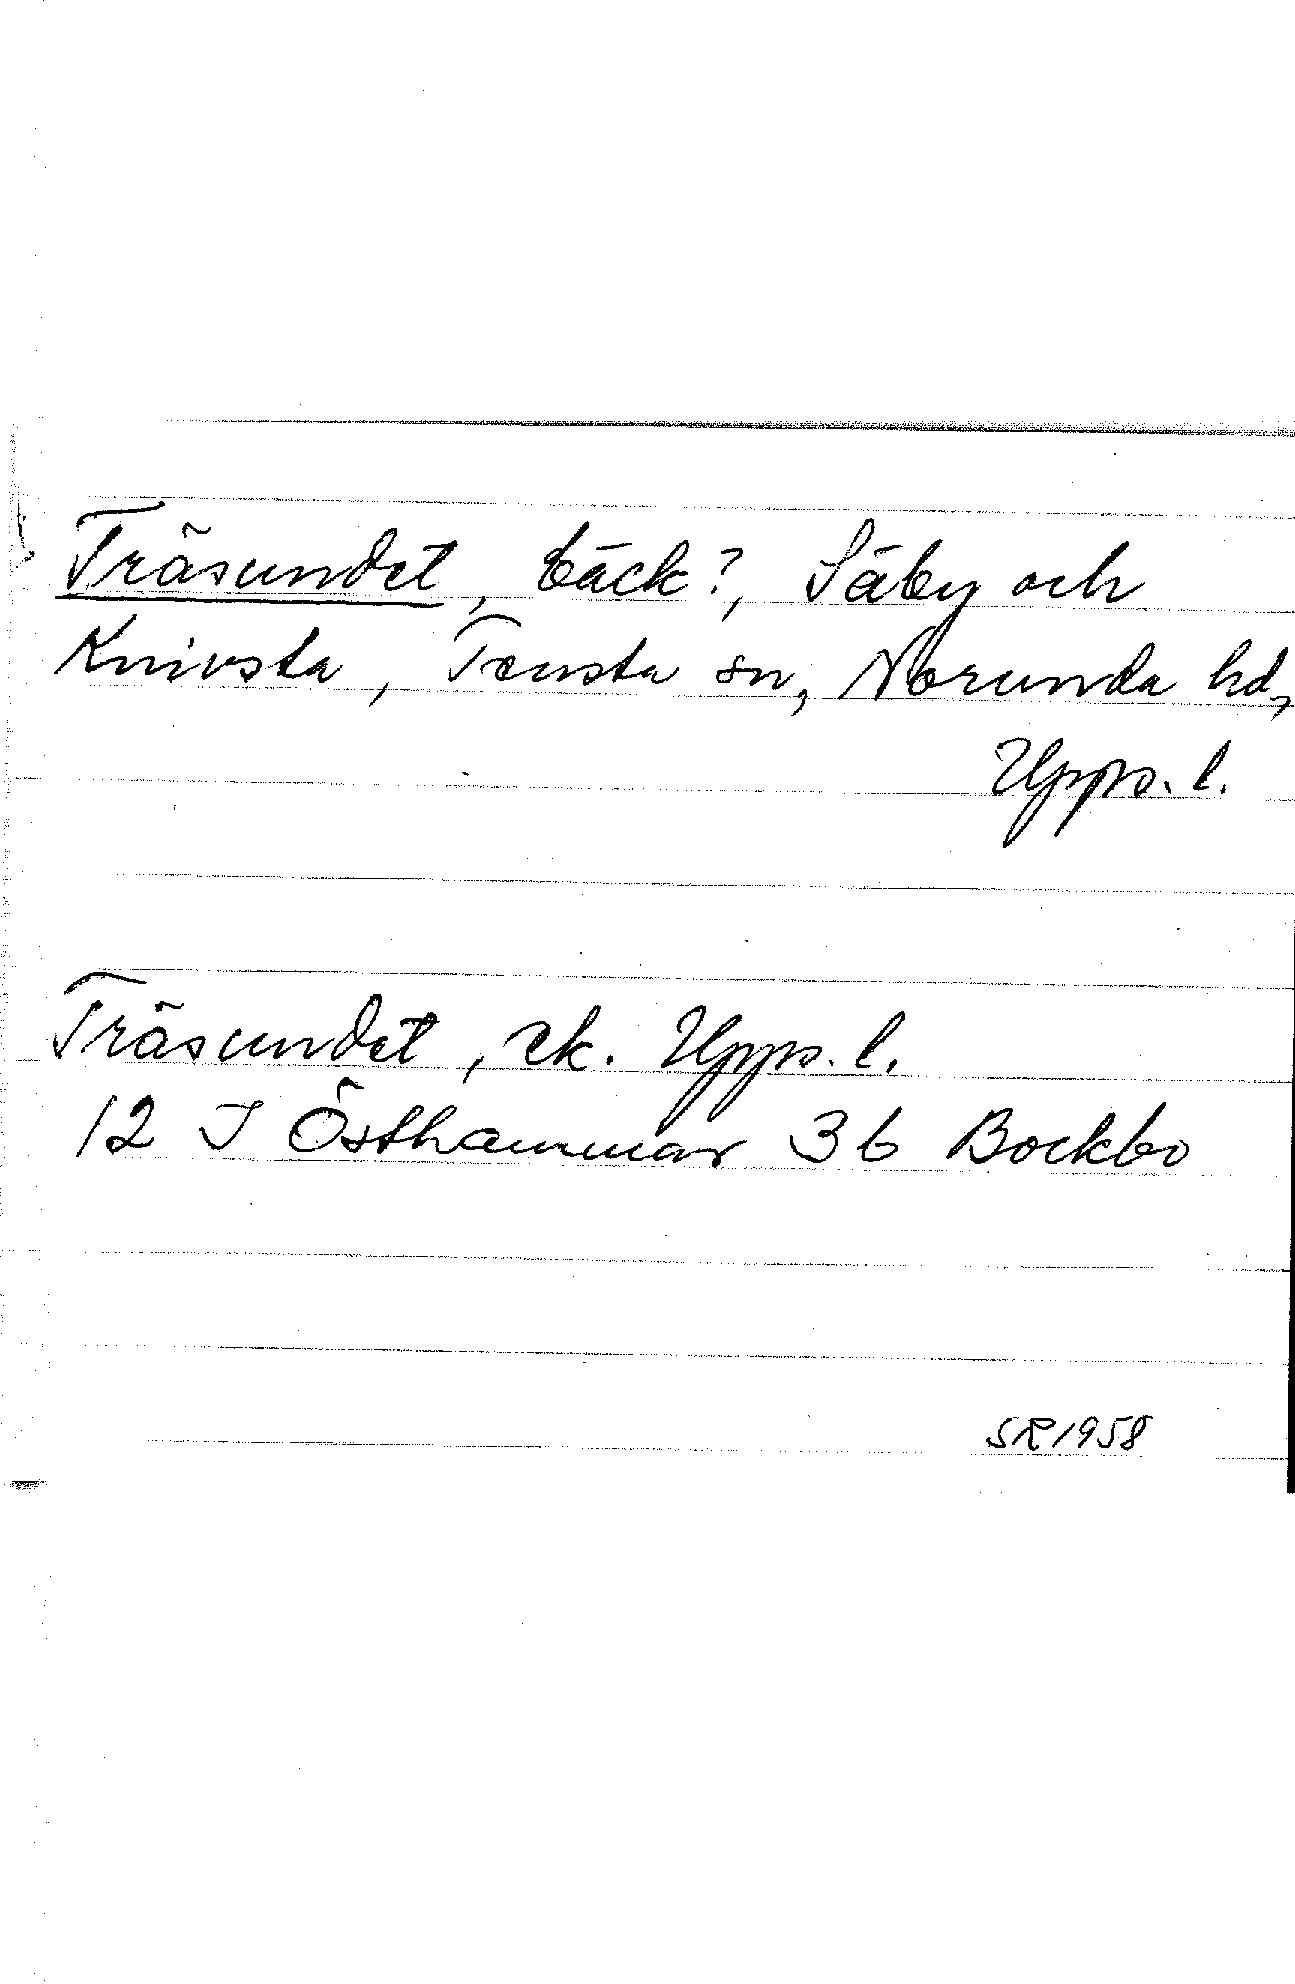 Träsundet, bäck?, Säby och
Knivsta, Tensta sn, Norunda hd,
Upps. l.
Träsundet, ek. Upps. l.
12 I Östhammar 3b Bockbo
SR 1958